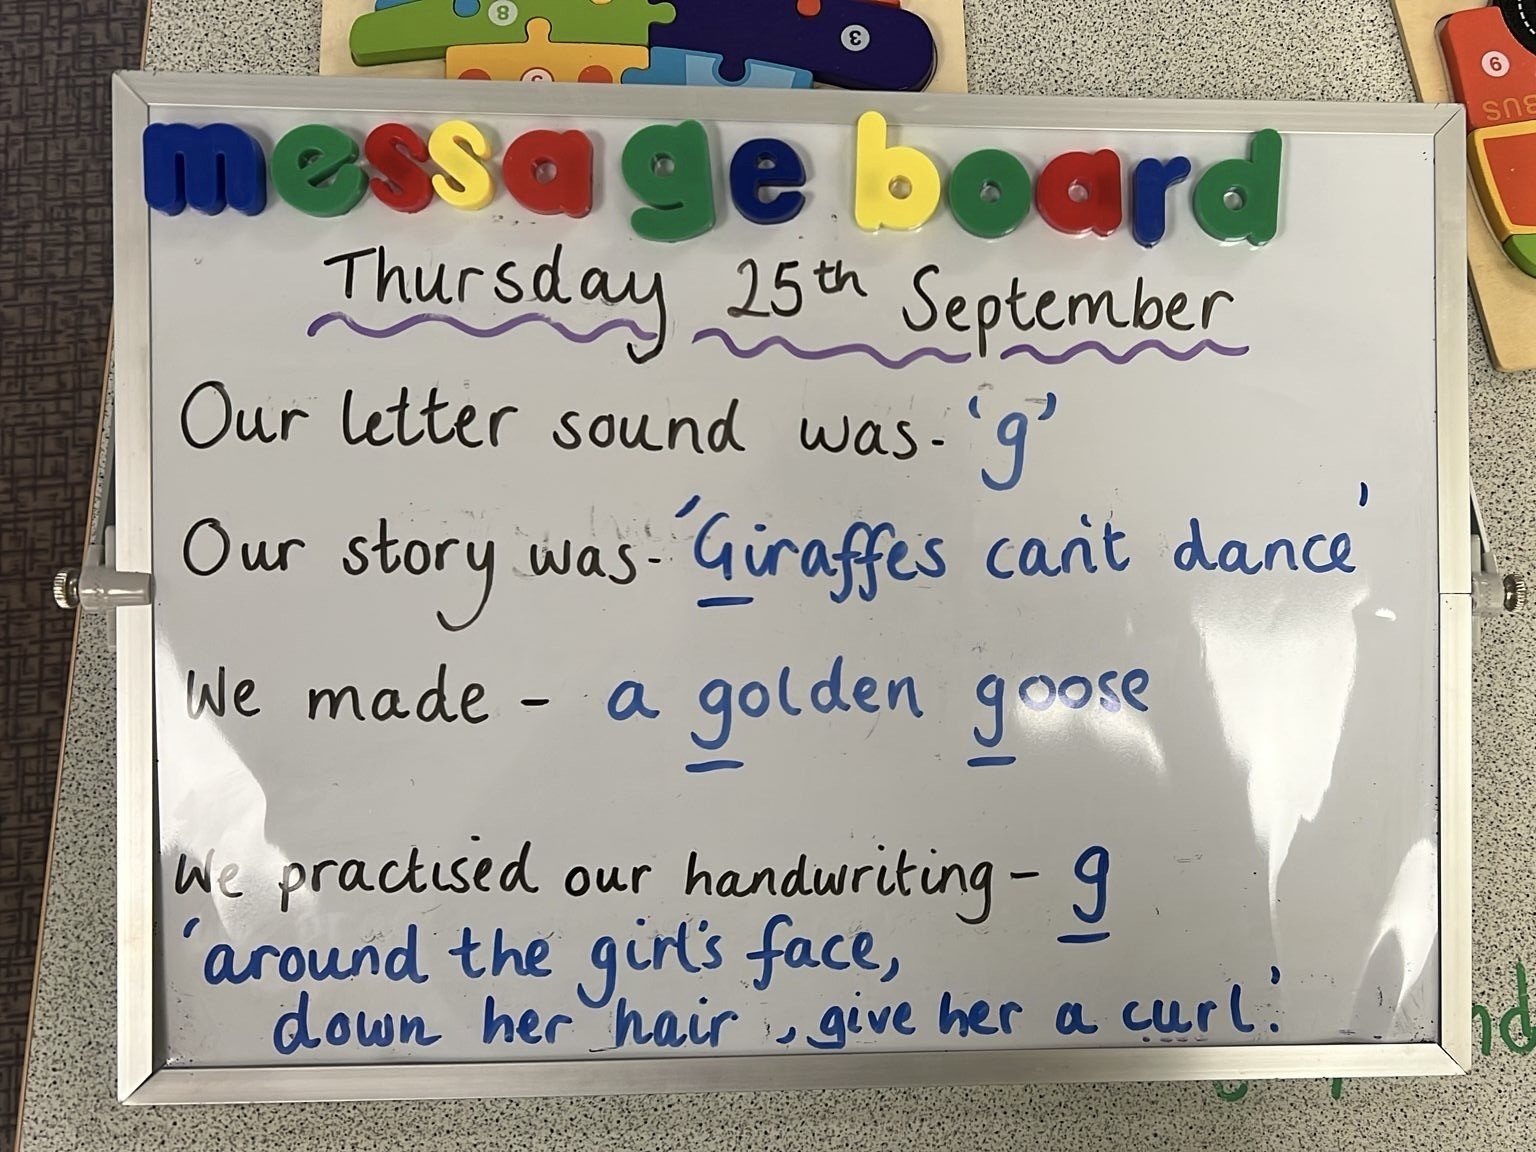 8
3
5
9
BUS
message board
Thursday 25th September
Our letter sound was- 'g'
Our story was- 'Giraffes can't dance'
We made - a golden goose
We practised our handwriting - g
'around the girl's face,
down her hair, give her a curl.'
nd